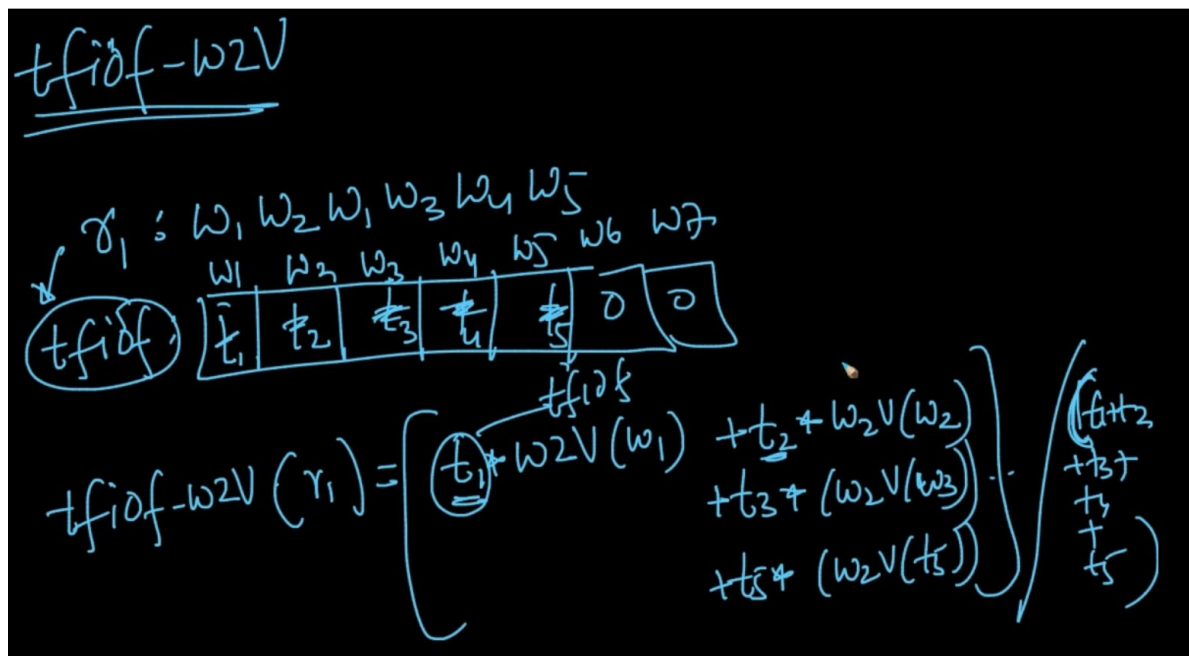 tfidf-w2V
r₁ : w₁ w₂ w₁ w₃ w₄ w₅
w1 w2 w3 w4 w5 w6 w7
tfidf t₁ t₂ t₃ t₄ t₅ 0 0
tfidf
tfidf-w2V (r₁) = [ t₁ * w2V (w₁) + t₂ * w₂V (w₂)
+ t₃ * (w₂V (w₃)) ..
+ t₅ * (w₂V (t₅)) ] / (t₁+t₂
+t₃+
t₄
+
t₅)